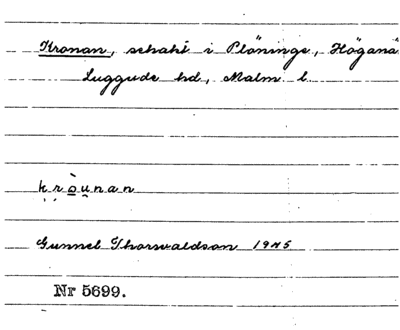 Kronan, schakt i Plöninge, Höganä
Luggude hd, Malm l.
k̩r̩òu̯nan
Gunnel Thorvaldson 1945
Nr 5699.